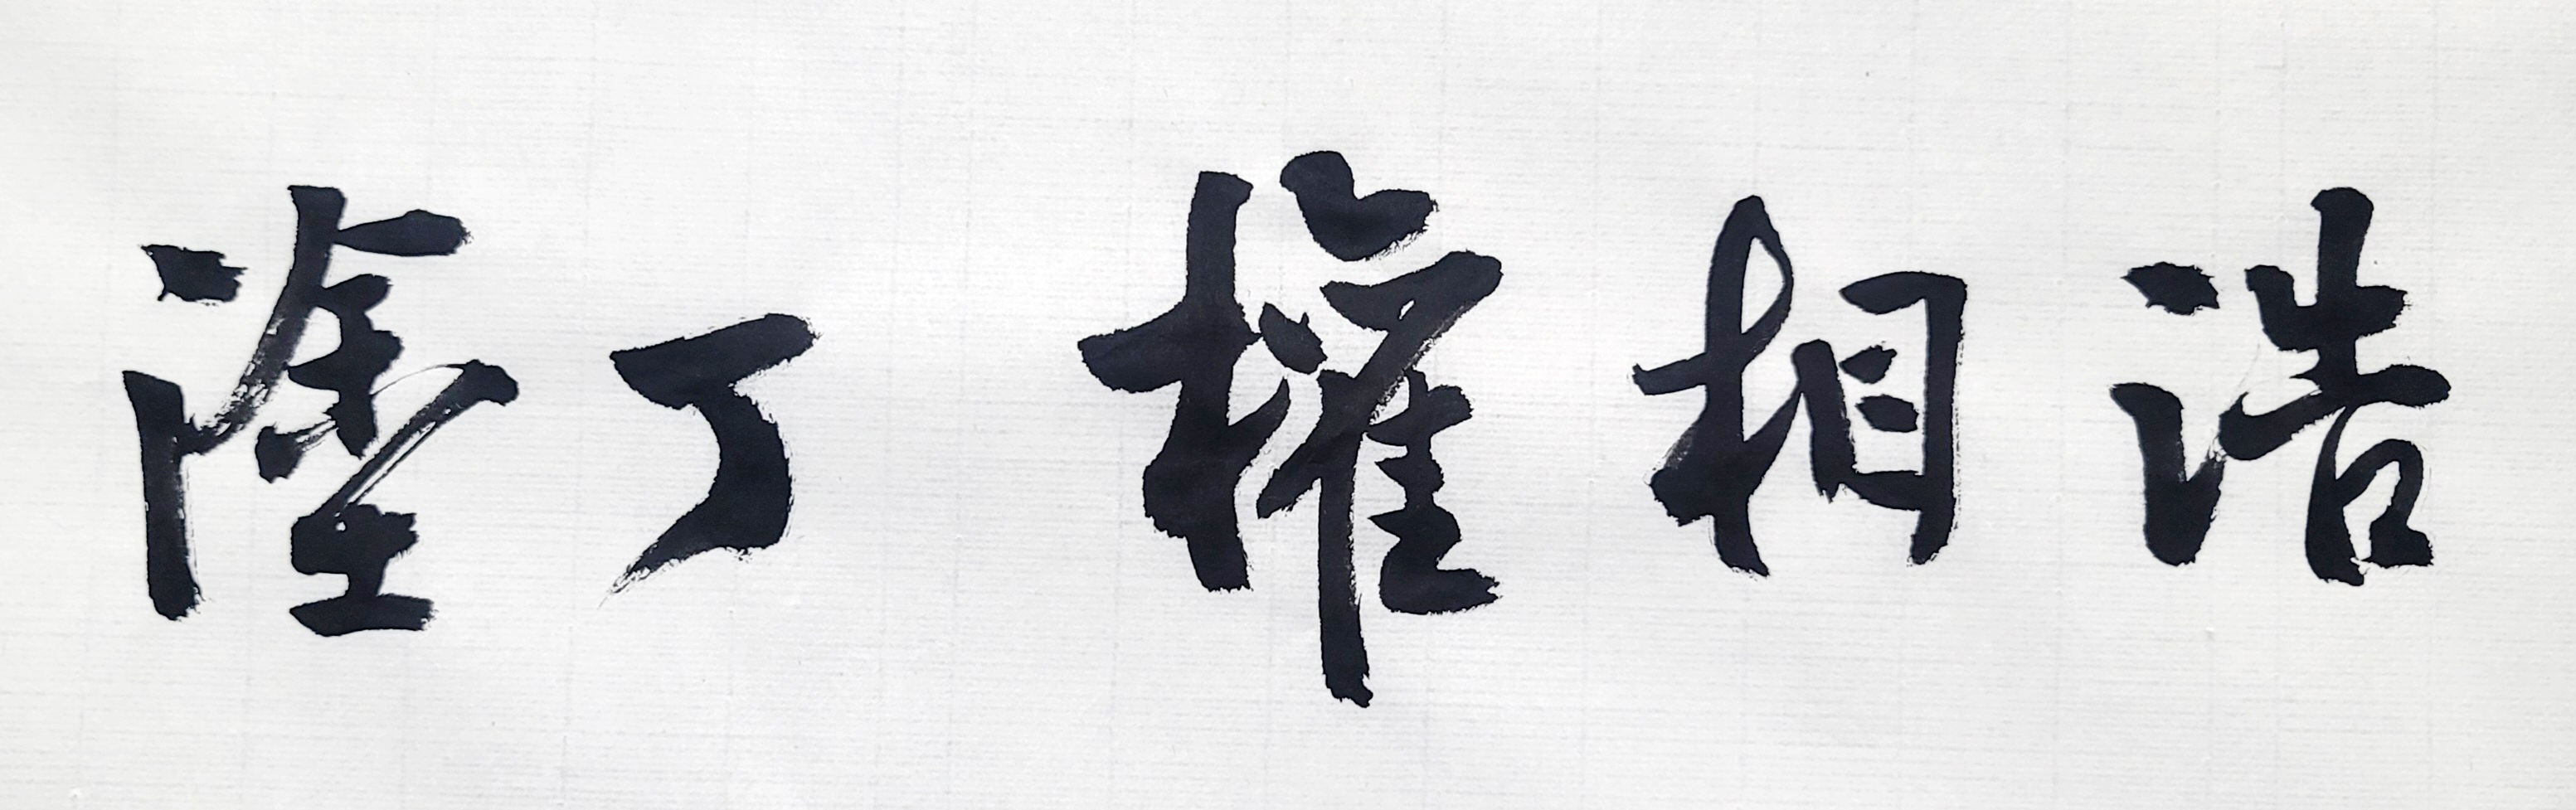 塗丁權相浩